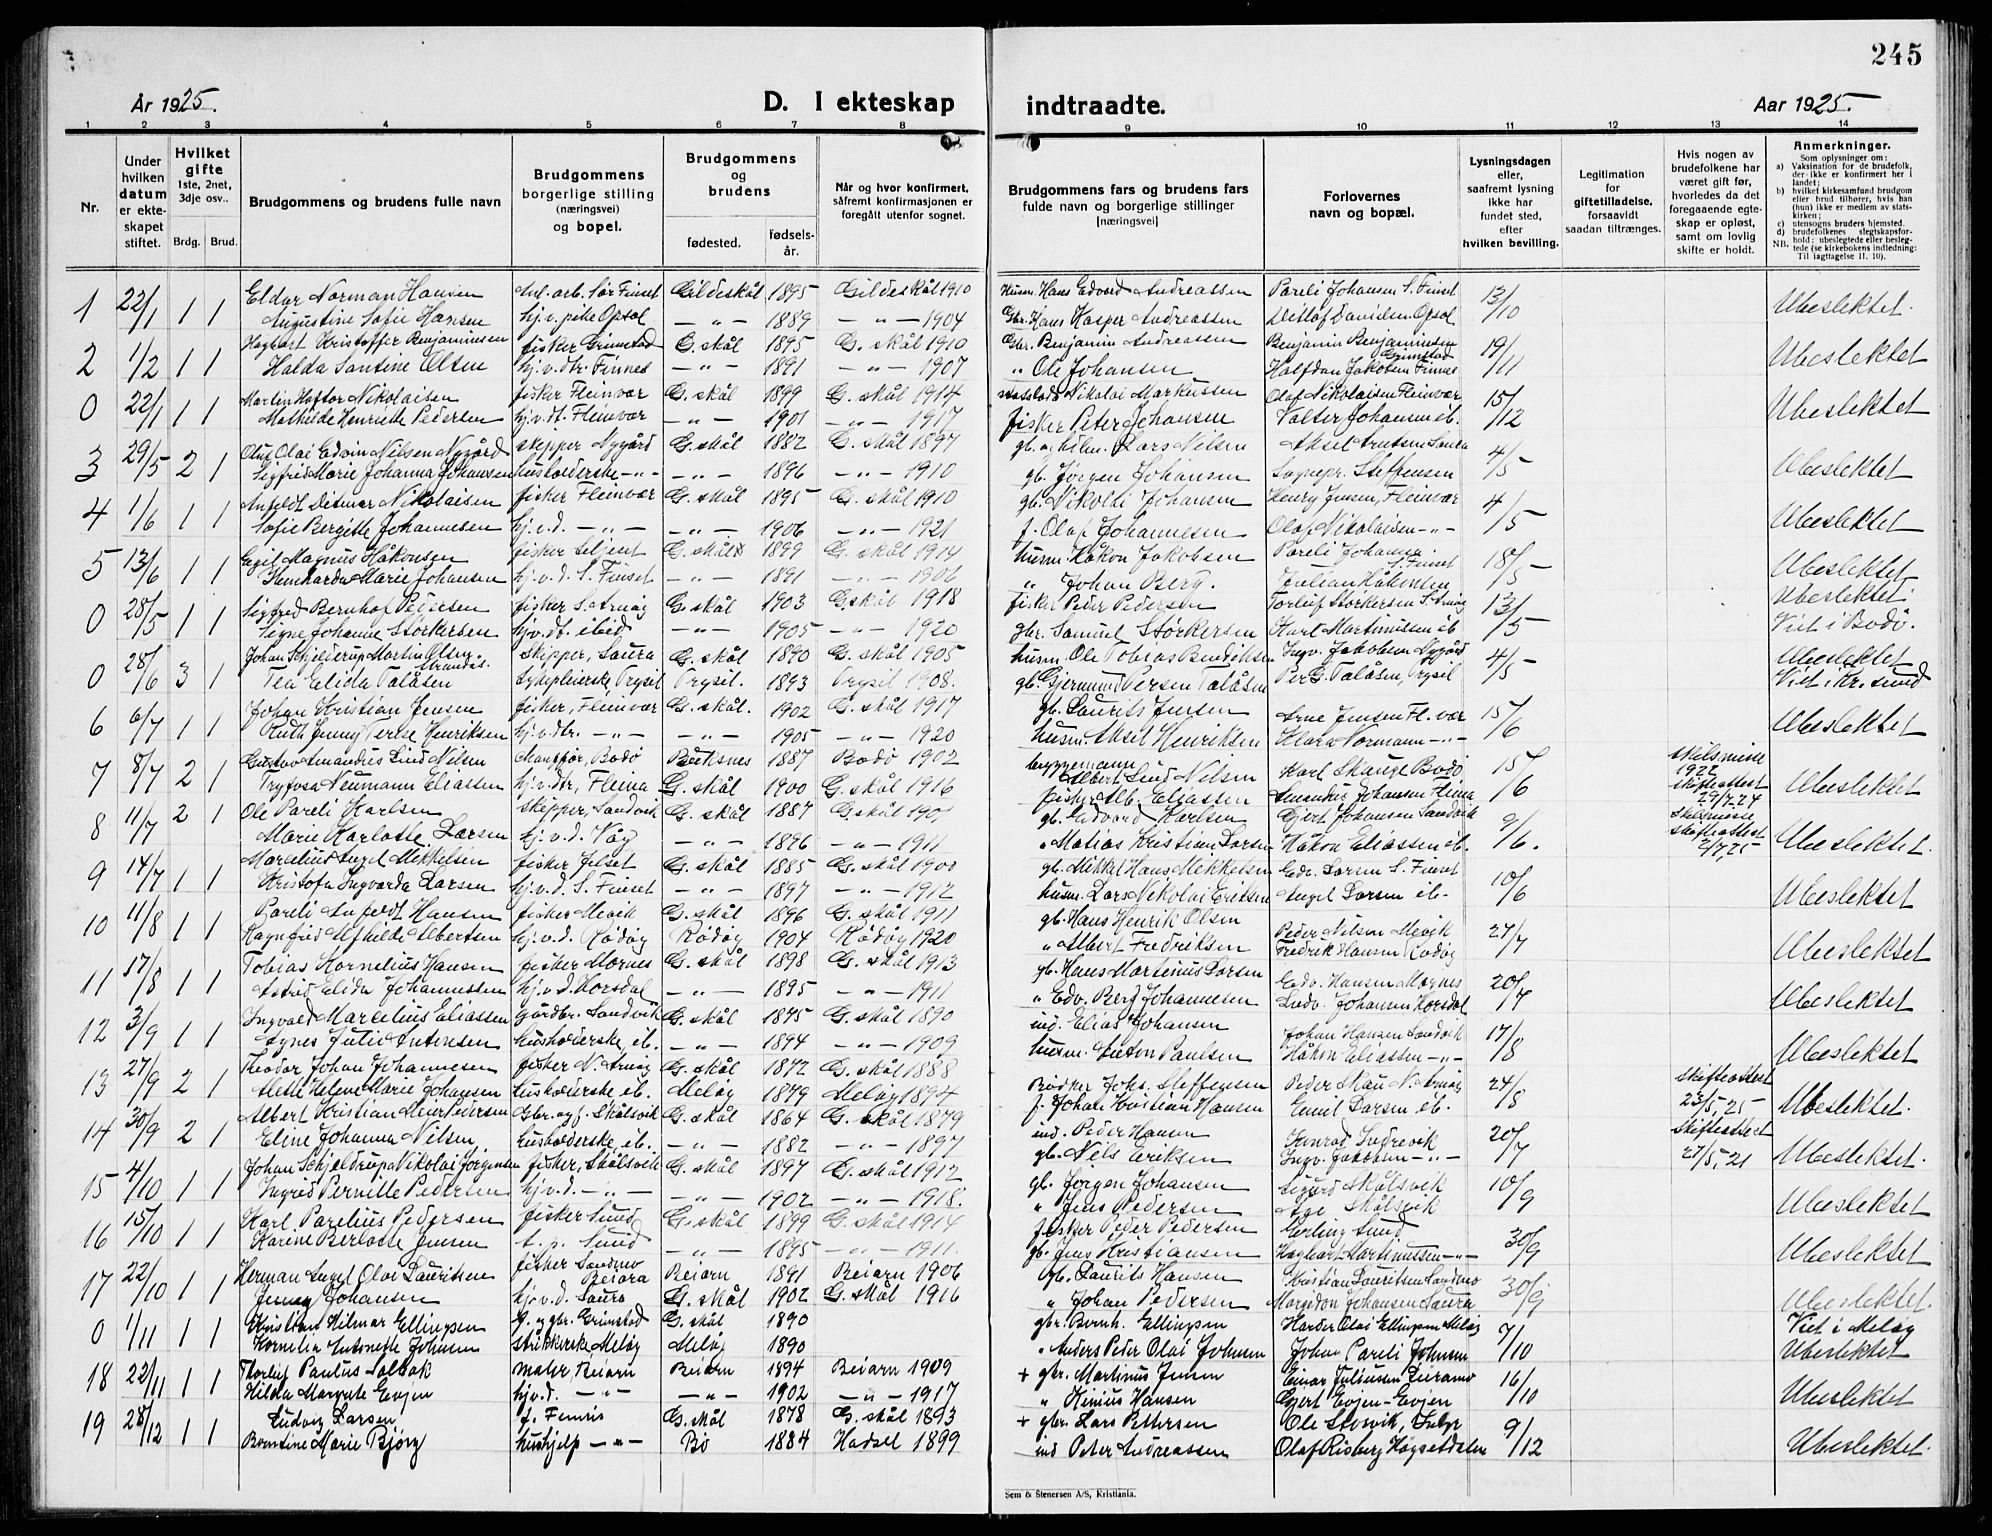 245
År 1925. D. I ekteskap indtraadte. Aar 1925.
1 2 3 4 5 6 7 8 9 10 11 12 13 14
Nr.
Under hvilken datum er ekteskapet stiftet.
Hvilket gifte 1ste, 2net, 3dje osv..
Brdg. Brud.
Brudgommens og brudens fulle navn
Brudgommens borgerlige stilling (næringsvei) og bopel.
Brudgommens og brudens
fødested. fødselsår.
Når og hvor konfirmert, såfremt konfirmasjonen er foregått utenfor sognet.
Brudgommens fars og brudens fars fulde navn og borgerlige stillinger [næringsvei]
Forlovernes navn og bopæl.
Lysningsdagen eller, saafremt lysning ikke har fundet sted, efter hvilken bevilling.
Legitimation for giftetilladelse, forsaavidt saadan tiltrænges.
Hvis nogen av brudefolkene har været gift før, hvorledes da det foregaaende egteskap er opløst, samt om lovlig skifte er holdt.
Anmerkninger.
Som oplysninger om:
a) Vaksination for de brudefolk, der ikke er konfirmert her i landet;
b) hvilket kirkesamfund brudgom eller brud tilhører, hvis han (hun) ikke er medlem av statskirken;
c) utensogns bruders hjemsted.
d) brudefolkenes slegtskapsforhold: ubeslegtede eller beslegtede (se kirkebokens indledning;
NB. Til iagttagelse II. 10).
1 22/1 1 1 Eldar Norman Hansen Sør Finset Gildeskål 1895 Gildeskål 1910 Husm. Hans Edvard Andreassen Pareli Johansen S. Finset 13/10 Ubeslektet.
Augustine Sofie Hansen hj. v. Opsal — „ — 1889 — „ — 1904 Gbr. Hans Kasper Andreassen Ditlef Davidsen Opsal
2 1/2 1 1 Hagbart Kristoffer Benjaminsen fisker Grimstad G. skål 1895 G. skål 1910 Gbr. Benjamin Andreassen Benjamin Benjaminsen Grimstad 19/11 Ubeslektet
Halda Santine Olsen hj. v. dtr. Finnes — „ — 1891 — „ — 1907 „ Ole Johansen Halfdan Jakobsen Finnes
0 22/1 1 1 Martin Haftor Nikolaisen fisker Fleinvær G. skål 1899 G. skål 1914 Nikolai Markussen Olaf Nikolaisen Fleinvær 15/12 Ubeslektet
Mathilde Henriette Pedersen hj. v. dt. Fleinvær — „ — 1901 — „ — 1917 fisker Peter Johansen Valter Johansen ib.
3 29/5 2 1 Olus Olai Edvin Nilsen Nygård skipper Nygård G. skål 1882 G. skål 1897 Lars Nilsen Aksel Arntsen Saura 4/5 Ubeslektet
Sigfrid Marie Johanna Johansen husholderske — „ — — „ — 1896 — „ — 1910 gb. Jørgen Johansen Sognepr. Steffensen
4 1/6 1 1 Anfeldt Ditmar Nikolaisen fisker Fleinvær G. skål 1895 G. skål 1910 gb. Nikolai Johansen Henry Jensen, Fleinvær 4/5 Ubeslektet
Sofie Bergitte Johannesen hj. v. d. — „ — — „ — 1906 — „ — 1921 f. Olaf Johannesen Olaf Nikolaisen — „ —
5 13/6 1 1 Egil Magnus Håkonsen fisker G. skål 1899 G. skål 1914 husm. Håkon Jakobsen Pareli Johansen S. Finset 18/5 Ubeslektet
Marie Johansen hj. v. d. S. Finset — „ — 1891 — „ — 1906 „ Johan Berg. Julian Håkonsen
0 28/5 1 1 Sigfred Bernhof Pedersen fisker S. Arnøy G. skål 1903 G. skål 1918 fisker Peder Pedersen Torleif Størkersen S. Arnøy 13/5 Ubeslektet
Signe Johanne Størkersen hj. v. dt. ibid — „ — 1905 — „ — 1920 gbr. Samuel Størkersen Karl Martinilsen ib. Viet i Bodø.
0 28/6 3 1 Johan Schjelderup Martin Olsen skipper, Saura G. skål 1890 G. skål 1905 husm. Ole Tobias Bendiksen Ingv. Jakobsen Nygård 4/5 Ubeslektet
Tea Elida Talåsen Sykepleierske, Trysil Trysil. 1893 Trysil 1908. gb. Gjermund Persen Talåsen Per G. Talåsen, Trysil Viet i Kr. sund
6 6/7 1 1 Johan Kristian Jensen fisker, Fleinvær G. skål. 1902 G. skål 1917 gb. Laurits Jensen Arne Jensen Fl. vær 15/6 Ubeslektet
Ruth Jenny Henriksen hj. v. dtr. — „ — — „ — 1905 — „ — 1920 husm. Aksel Henriksen Klara Normann — „ —
7 8/7 2 1 Gustav Amandus Lind Nilsen Bodø 1887 Bodø 1902 Albert Lind Nilsen Karl Skauge Bodø 15/6 Skilsmisse 1922 skifteattest 29/7-24 Ubeslektet
Tryfosa Neumann Eliassen hj. v. dtr. Fleina G. skål 1900 G. skål 1916 fisker Alb. Eliassen Amandus Johansen Fleina
8 11/7 2 1 Ole Pareli Karlsen skipper, Sandvik G. skål 1887 G. skål gb. Edvard Karlsen Gjert Johansen Sandvik 9/6. Skilsmisse skifteattest 2/7, 25 Ubeslektet.
Marie Karlotte Larsen hj. v. d. Våg — „ — 1896 — „ — 1911 „ Matias Kristian Larsen Håkon Eliassen ib.
9 14/7 1 1 Marelius Angel Mikkelsen fisker G. skål 1885 G. skål 1900 gb. Mikkel Hans Mikkelsen Edv. Larsen S. Finset 10/6 Ubeslektet
Kristofa Ingvarda Larsen hj. v. d. S. Finset — „ — 1897 — „ — 1912 husm. Lars Nikolai Eriksen Angel Larsen ib.
10 11/8 1 1 Pareli Anfeldt Hansen fisker Mevik G. skål 1896 G. skål 1911 gb. Hans Henrik Olsen Peder Nilsen Mevik 27/7 Ubeslektet
Ragnfrid Alfhilde Albertsen hj. v. d. Rødøy Rødøy 1904 Rødøy 1920 „ Albert Fredriksen Fredrik Hansen Rødøy
11 17/8 1 1 Tobias Kornelius Hansen fisker Mørnes G. skål 1898 G. skål 1913 gb. Hans Martinius Larsen Edv. Hansen Mørnes 20/7 Ubeslektet
Astrid Elida Johannessen hj. v. d. Horsdal — „ — 1895 — „ — 1911 „ Edv. Berg Johannesen Ludv. Johansen Horsdal
12 3/9 1 1 Ingvald Marcelius Eliassen gårdbr. Sandvik G. skål 1875 G. skål 1890 ind. Elias Johansen Johan Hansen Sandvik 17/8 Ubeslektet
Agnes Julie Antonsen husholderske, ib. — „ — 1894 — „ — 1909 husm. Anton Paulsen Håkon Eliassen — „ —
13 27/9 2 1 Theodor Johan Johannesen fisker N. Arnøy G. skål 1872 G. skål 1888 Bødker Johs. Steffensen Peder Skau N. Arnøy 24/8 Skifteattest 23/5, 25 Ubeslektet.
Mette Helene Marie Johansen husholderske ib. Meløy 1879 Meløy 1894 f. Johan Kristian Hansen Emil Larsen ib.
14 30/9 2 1 Albert Kristian Meier Pedersen Gbr. og f. Skålsvik G. skål 1864 G. skål 1879 ind. Peder Hansen Konrad Indrevik 20/7 Skifteattest 27/5, 21 Ubeslektet.
Eline Johanna Nilsen husholderske, ib. — „ — 1882 „ — 1897 gb. Nils Eriksen Ingv. Jakobsen — „ —
15 4/10 1 1 Johan Schjeldrup Nikolai Jørgensen fisker, Skålsvik G. skål 1897 G. skål 1912 gb. Jørgen Johansen Sigurd Skålsvik 10/9 Ubeslektet
Ingrid Pernille Pedersen hj. v. d. — „ — — „ — 1902 — „ — 1918. „ Jens Pedersen Åge Skålsvik
16 15/10 1 1 Karl Parelius Pedersen fisker Sund G. skål 1899 G. skål 1914 fisker Peder Pedersen Erling Sund 30/9 Ubeslektet
Karine Berlotte Jensen t. p. Sund — „ — 1895 „ — 1911. gb. Jens Kristiansen Hagbart Martinussen — „ —
17 22/10 1 1 Herman Angel Olai Lauritsen fisker Sandmo Beiarn Beiarn 1891 Beiarn 1906 gb. Laurits Hansen Kristian Lauritsen Sandmo 30/9 Ubeslektet.
Jenny Johansen hj. v. d. Saura G. skål 1902 G. skål 1916 „ Johan Pedersen Margidon Johansen Saura
0 1/11 1 1 Kristian Hilmar Ellingsen Grimstad G. skål 1890 gbr. Bernh. Ellingsen Harder Olai Ellingsen Meløy 7/10 Viet i Meløy
Kornelia Antonette Johnsen Strikkerske Meløy Meløy 1890 „ Anders Peder Olai Johnsen Johan Pareli Johnsen Ubeslektet
18 22/11 1 1 Thorleif Paulus Solbak maler, Beiarn Beiarn 1894 Beiarn 1909 + gbr. Martinus Jensen Einar Juliussen Leiramo 16/10 Ubeslektet
Hilda Margrete Evjen hj. v. d. — „ — — „ — 1902 — „ — 1917 „ Kinius Hansen Gjert Evjen - Evjen
19 28/12 1 1 Ludvig Larsen f. Femris G. skål 1878 G. skål 1893 + gbr. Lars Pettersen Ole Storvik, Indyr 9/12 Ubeslektet.
Berntine Marie Bjørg hushjelp — „ — Bø 1884 Hadsel 1899 ind Peter Andreassen Olaf Risberg Høgsetdalen
Sem & Stenersen A/S, Kristiania.